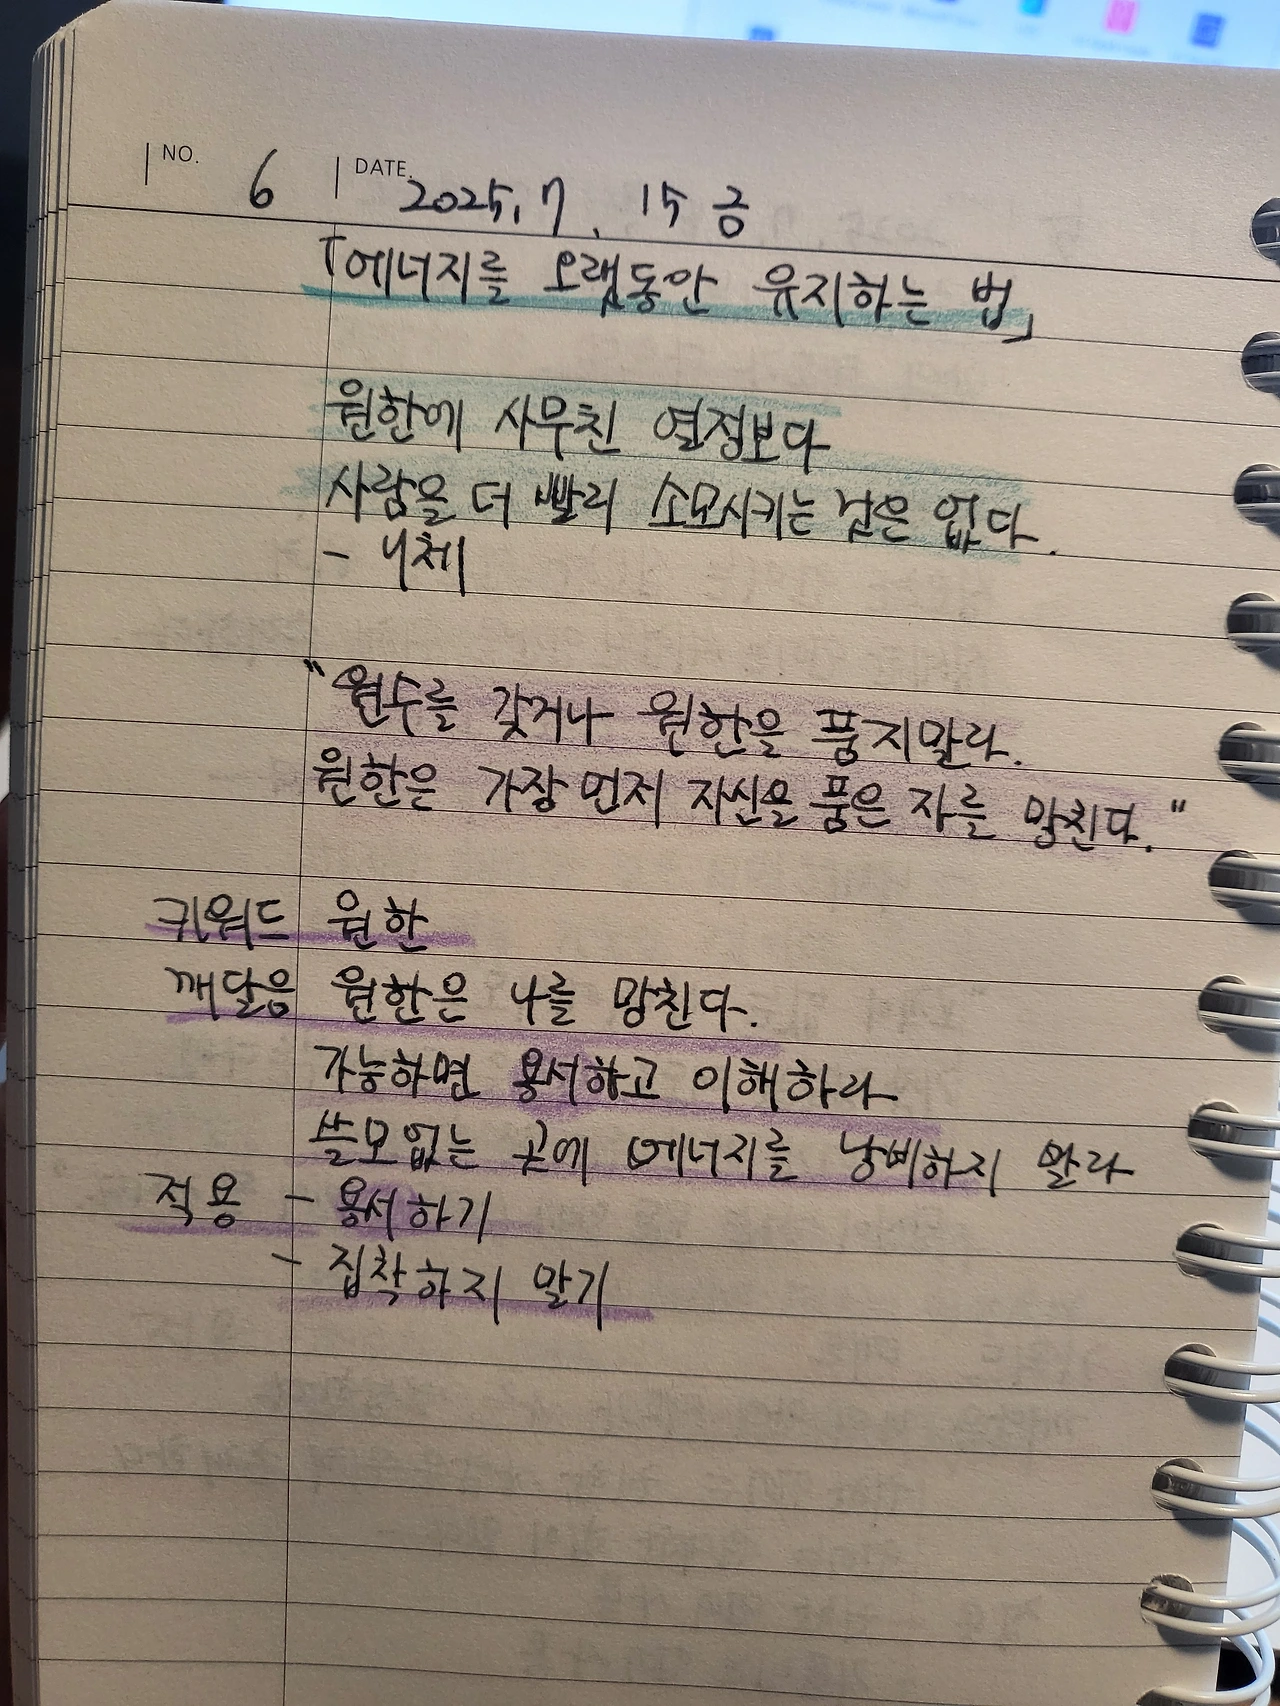 NO. 6 DATE. 2025. 7. 15 금
「에너지를 오램동안 유지하는 법」
원한에 사무친 열정보다
사람을 더 빨리 소모시키는 것은 없다.
- 니체
"원수를 갖거나 원한을 품지말라.
원한은 가장 먼저 자신을 품은 자를 망친다."
키워드 원한
깨달음 원한은 나를 망친다.
가능하면 용서하고 이해하라
쓸모없는 곳에 에너지를 낭비하지 말라
적용 - 용서하기
- 집착하지 말기